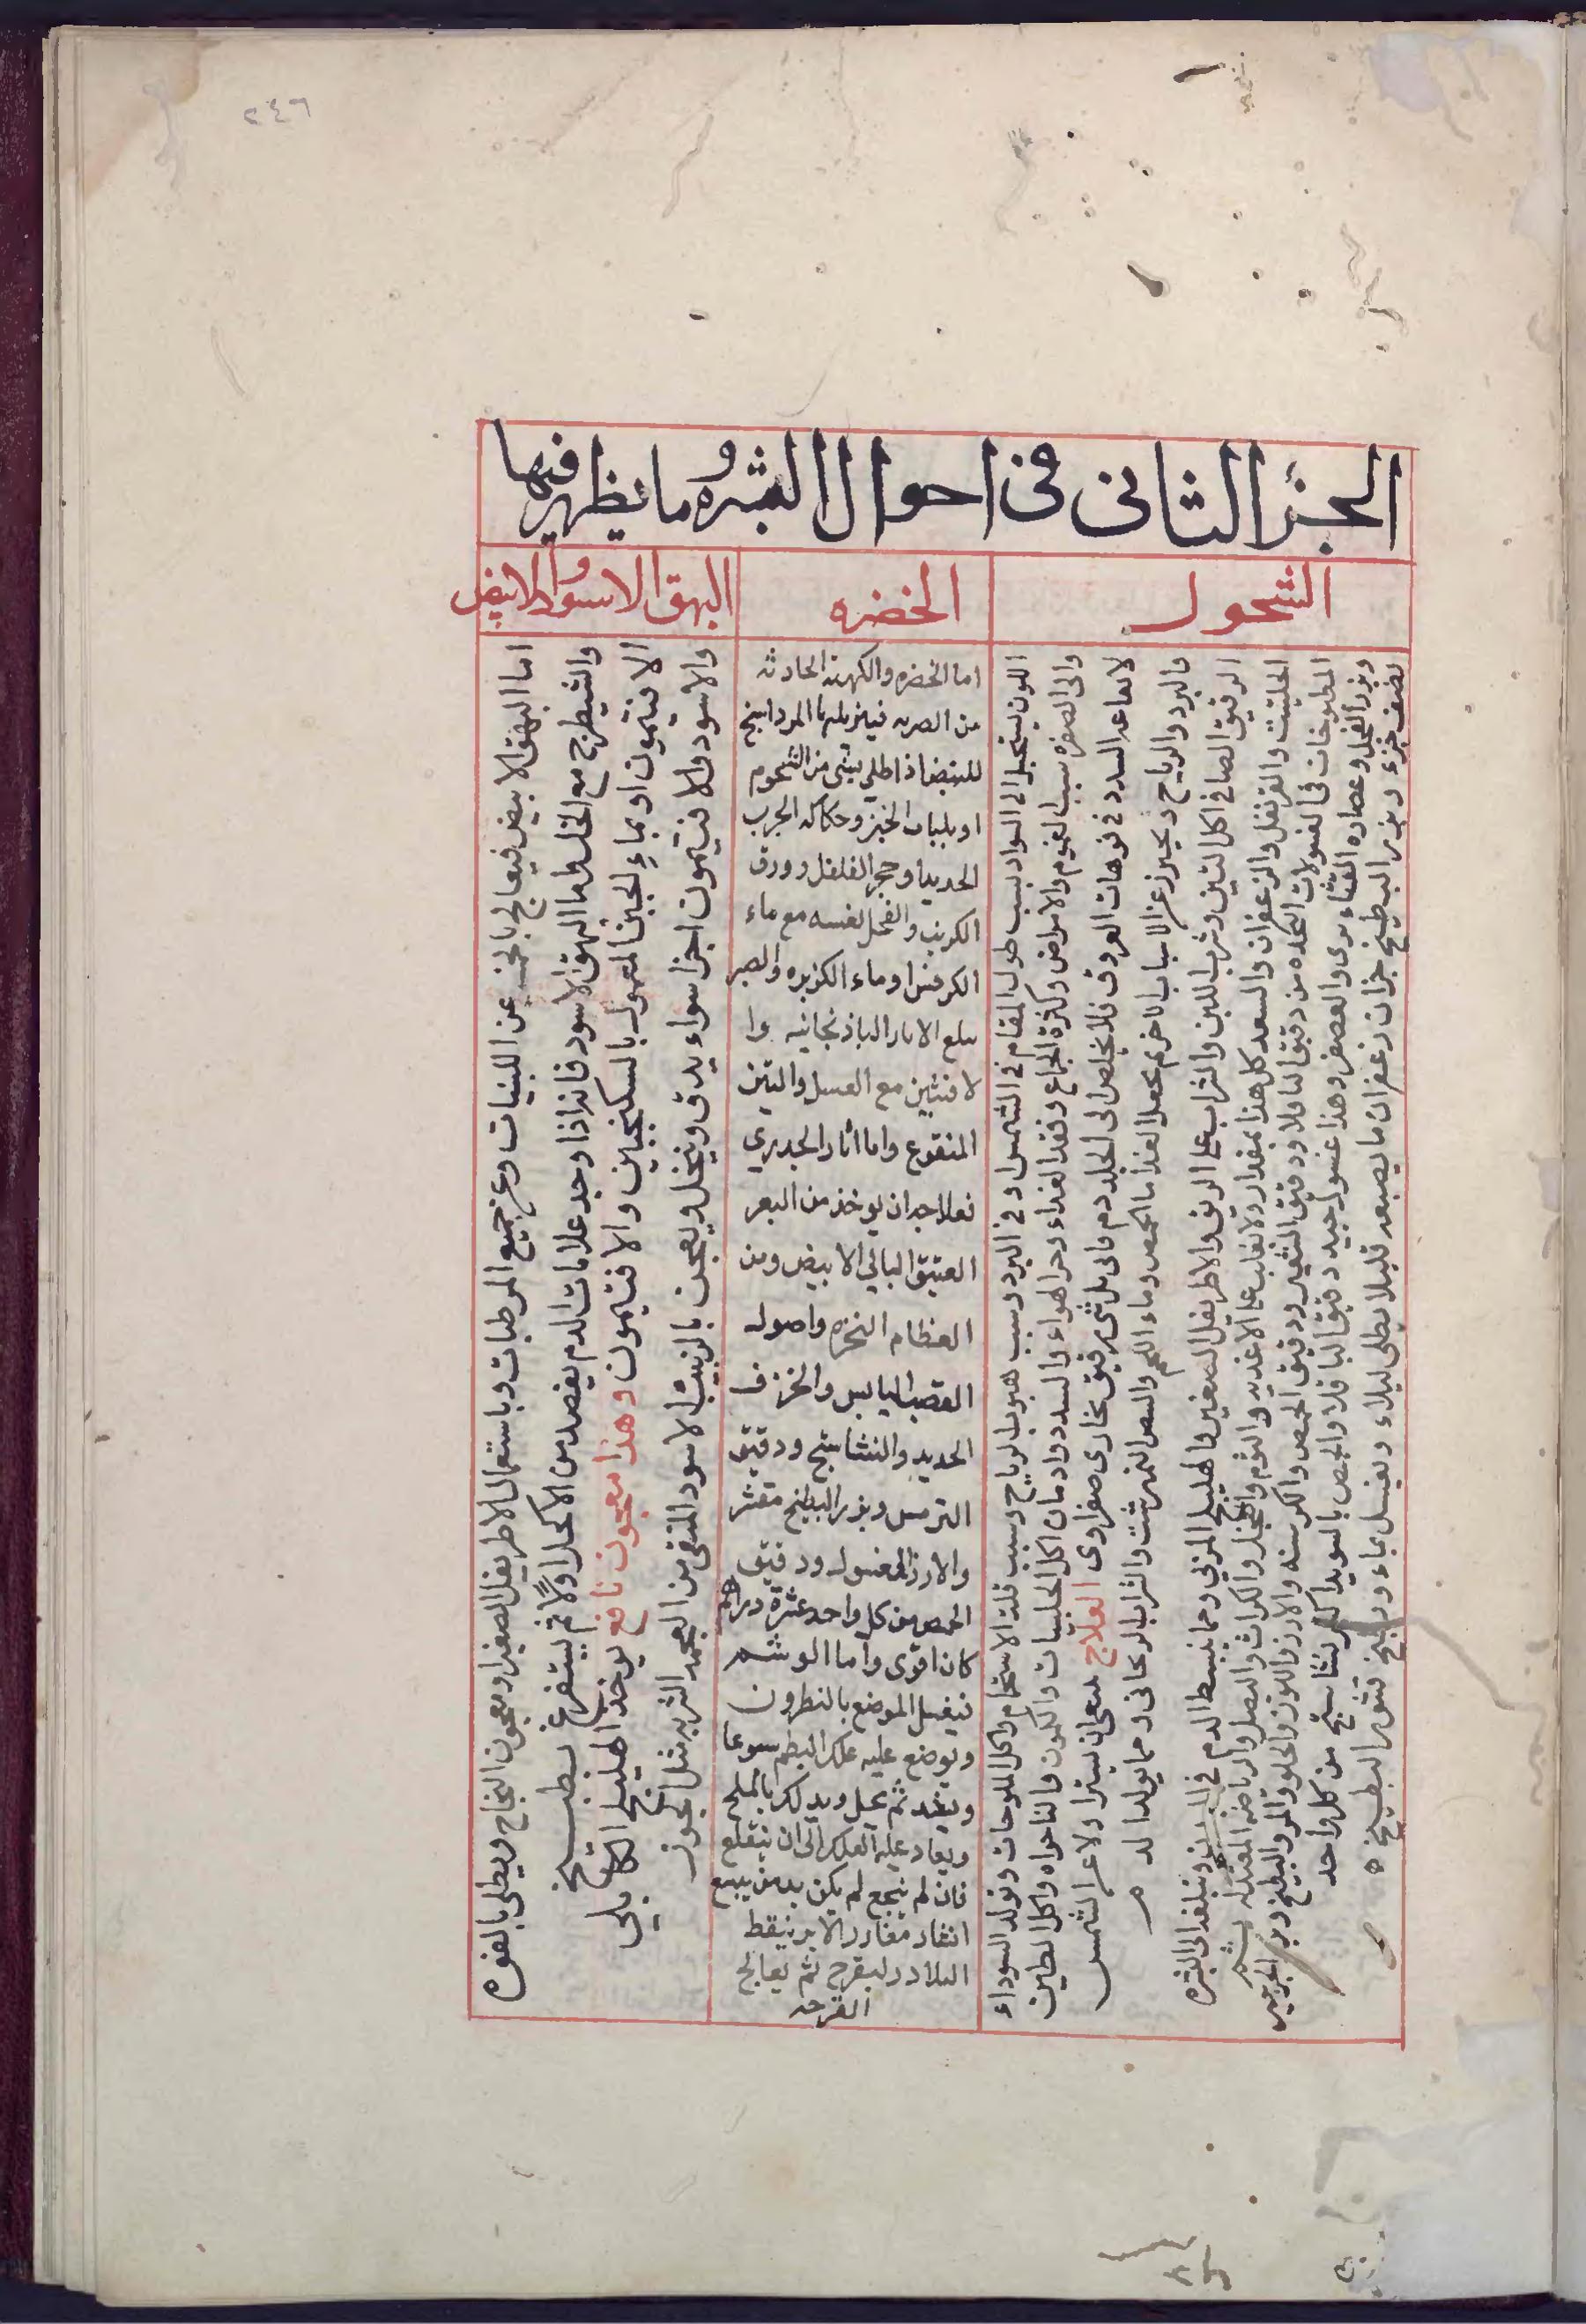 ٢٤٦
الجزء الثانى فى احوال البشره وما يظهر فيها
الشحول
الخضره
البهق الاسود والابيض
اللون يستحيل الى السواد بسبب طول المقام فى الشمس او فى البرد وبسبب هبوب الرياح وبسبب قلة الاستحمام واكل الملوحات وتولد السوداء
والى الصفره بسبب الغموم والامراض وكثرة الجماع وفقد الغذاء وحر الهواء والسدد وادمان اكل الحلبيات والكمون والنانخواه واكل الطين
السدد فى فوهات العروق فلا يخلص الى الجلد دم قانى بل شى رقيق بخارى صفراوى العلاج الشمس
والبرد والرياح الاسباب الاخر ثم يجعل الغذا ماء الحمص وماء اللحم والبيض النمرشت والشراب الريحانى وما يولد الدم
الرقيق الصافى اكل التين وشرب اللبن والشراب على الريق والاطريفل الصغير والهليلج المربى ومما يبسط الدم فى البدن وينفذه الى البشره
الحلتيت والقرنفل والزعفران والسعد كل هذا بمقدار ولا يغلب على الاغذيه والثوم والفجل والكراث والبصل والرياضه المعتدله
المطلوخات فى الغسولات المتخذه من دقيق الباقلا ودقيق الشعير ودقيق الحمص والكرسنه والارز واللوز الحلو والمر والبطيخ وبزر الجرجير
وبزر الفجل وعصاره القثاء برى والعصفر وهذا غسول جيد دقيق الباقلا والحمص بالسويه كثيرا نشاستج من كل واحد
نصف جزء وبزر البطيخ جزان زعفران ما يصبغه قليلا يطلى ليلا ويغسل بماء ودبيخ قشور البطيخ
اما الخضره والكهبة الحادثه
عن الضربه فيزيلها المرداسنج
المبيض اذا طلى بشى من الشحوم
او بلباب الخبز وحكاكه الجرب
الحديد وحجر الفلفل وورق
الكرنب والفجل نفسه مع ماء
الكرفس او ماء الكزبره والصبر
يقلع الاثار الباذنجانيه
الافسنتين مع العسل والتين
المنقوع واما اثار الجدرى
فعلاجه ان يوخذ من البعر
العتيق البالى الابيض ومن
العظام النخره واصول
القصب اليابس والخزف
الجديد والنشاستج ودقيق
الترمس وبزر البطيخ مقشر
والارز المغسول ودقيق
الحمص من كل واحد عشرة دراهم
كان اقوى واما الوشم
فيغسل الموضع بالنطرون
ويوضع عليه علك البطم اسبوعا
ويشد ثم يحل ويدلك بالملح
ويعاد عليه العلك الى ان ينقلع
فان لم ينجع لم يكن بد من تتبع
مغارز الابر بنقط
البلادر ليقرح ثم يعالج
القرحه
اما البهق الابيض فيعالج بالحميه عن اللبنيات وعن جميع المرطبات وباستعمال الاطريفل الصغير او معجون النجاح ويطلى بالفوه
والشيطرج مع الخل واما البهق الاسود فانه اذا وجد علامات الدم يفصد من الاكحل اولا ثم يستفرغ بطبيخ
الافتيمون او بماء الجبن المعمول بالسكنجبين والافتيمون وهذا معجون نافع يوخذ الهليلج الكابلى
والاسود والافتيمون اجزا سواء يدق وينخل ويعجن بالزبيب الاسود المنقى من العجم الشربه مثل الجوز